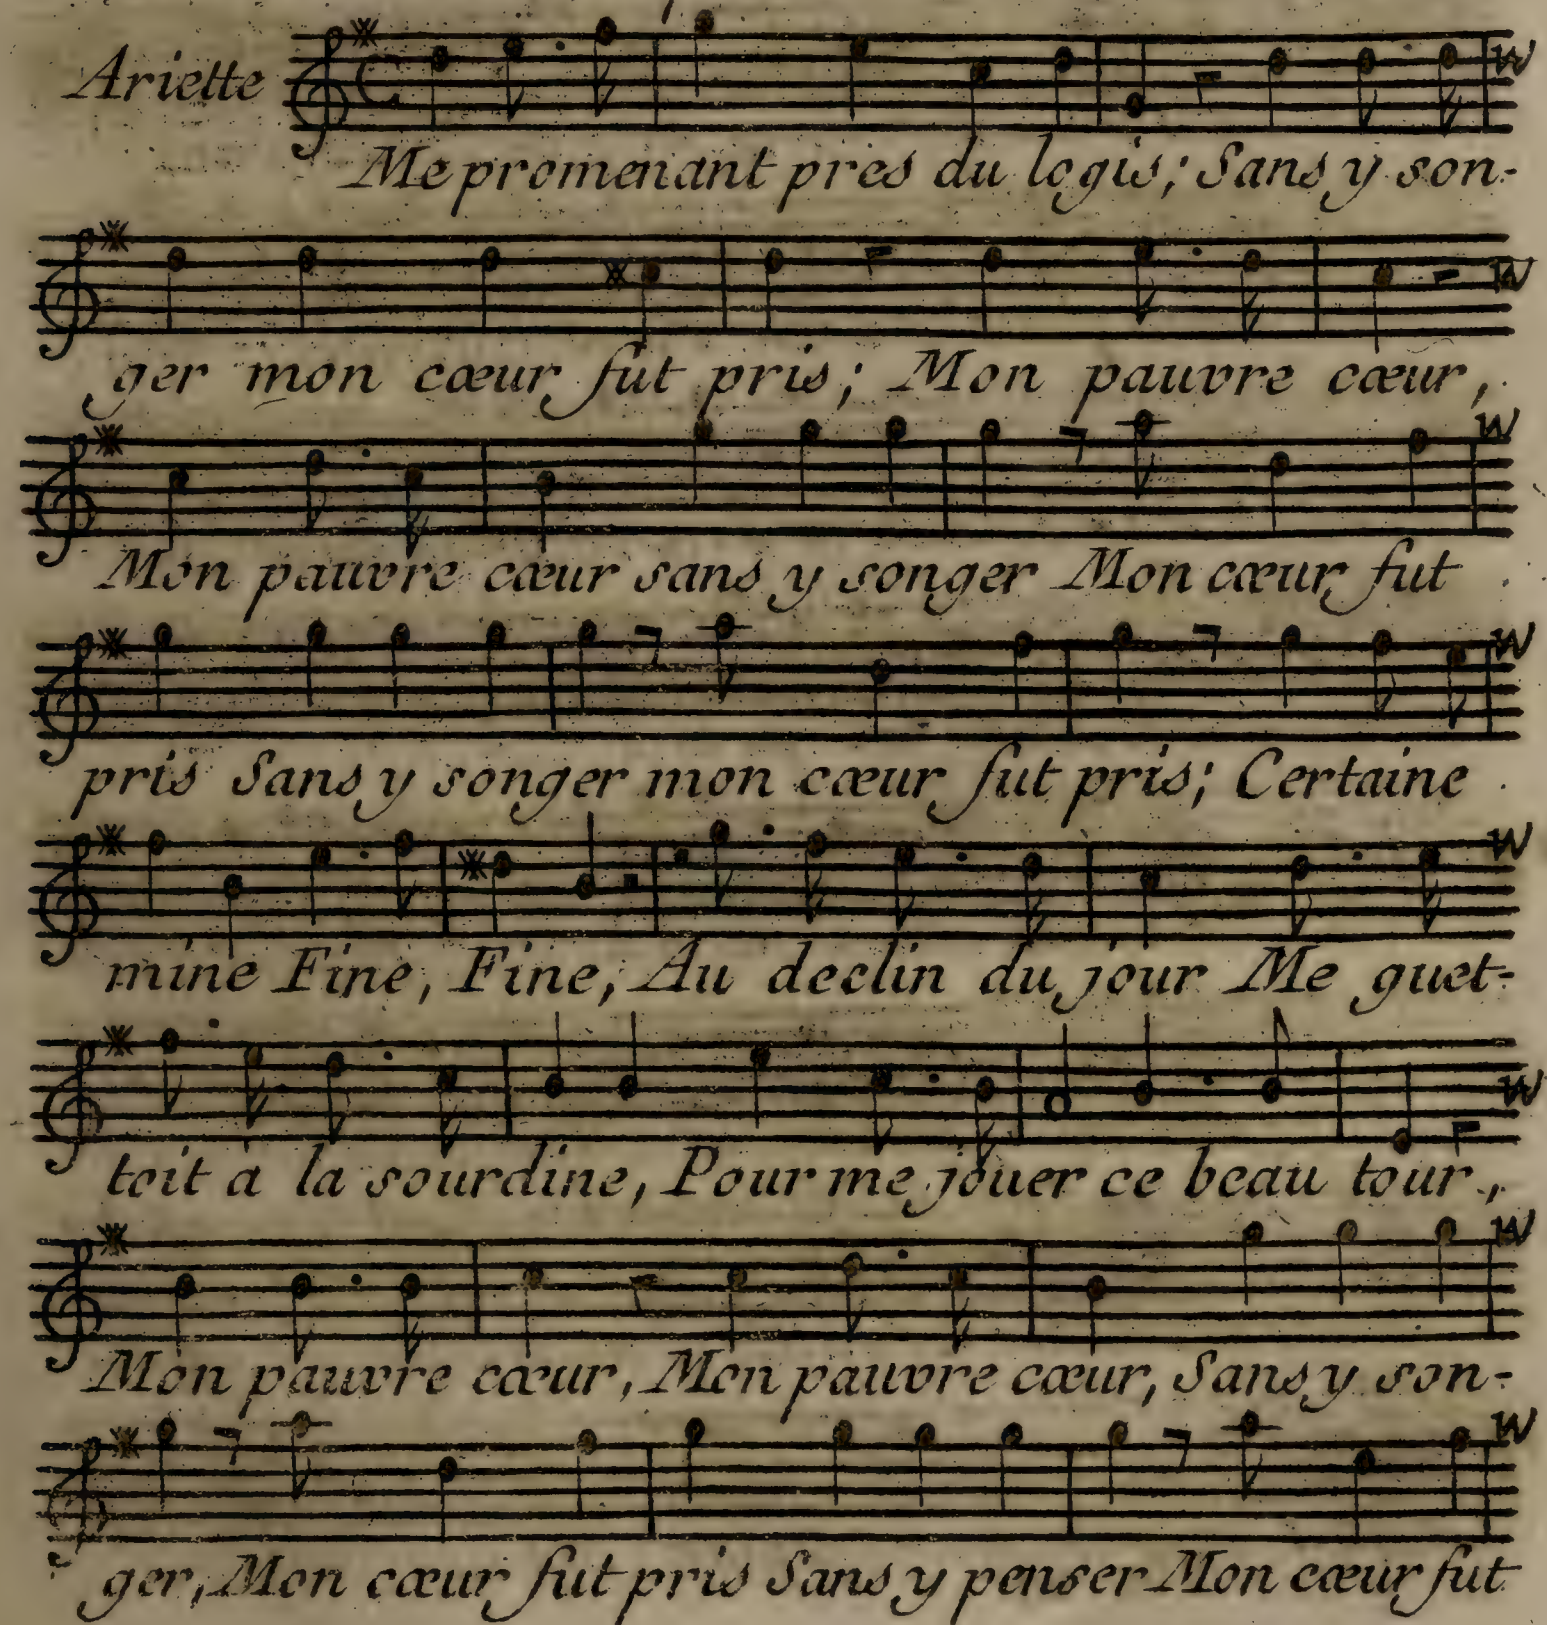 Ariette
Me promenant pres du logis; Sans y son-
ger mon cœur fut pris; Mon pauvre cœur,
Mon pauvre cœur sans y songer Mon cœur fut
pris Sans y songer mon cœur fut pris; Certaine
mine Fine, Fine, Au declin du jour Me guet-
toit à la sourdine, Pour me jouer ce beau tour,
Mon pauvre cœur, Mon pauvre cœur, Sans y son-
ger, Mon cœur fut pris Sans y penser Mon cœur fut